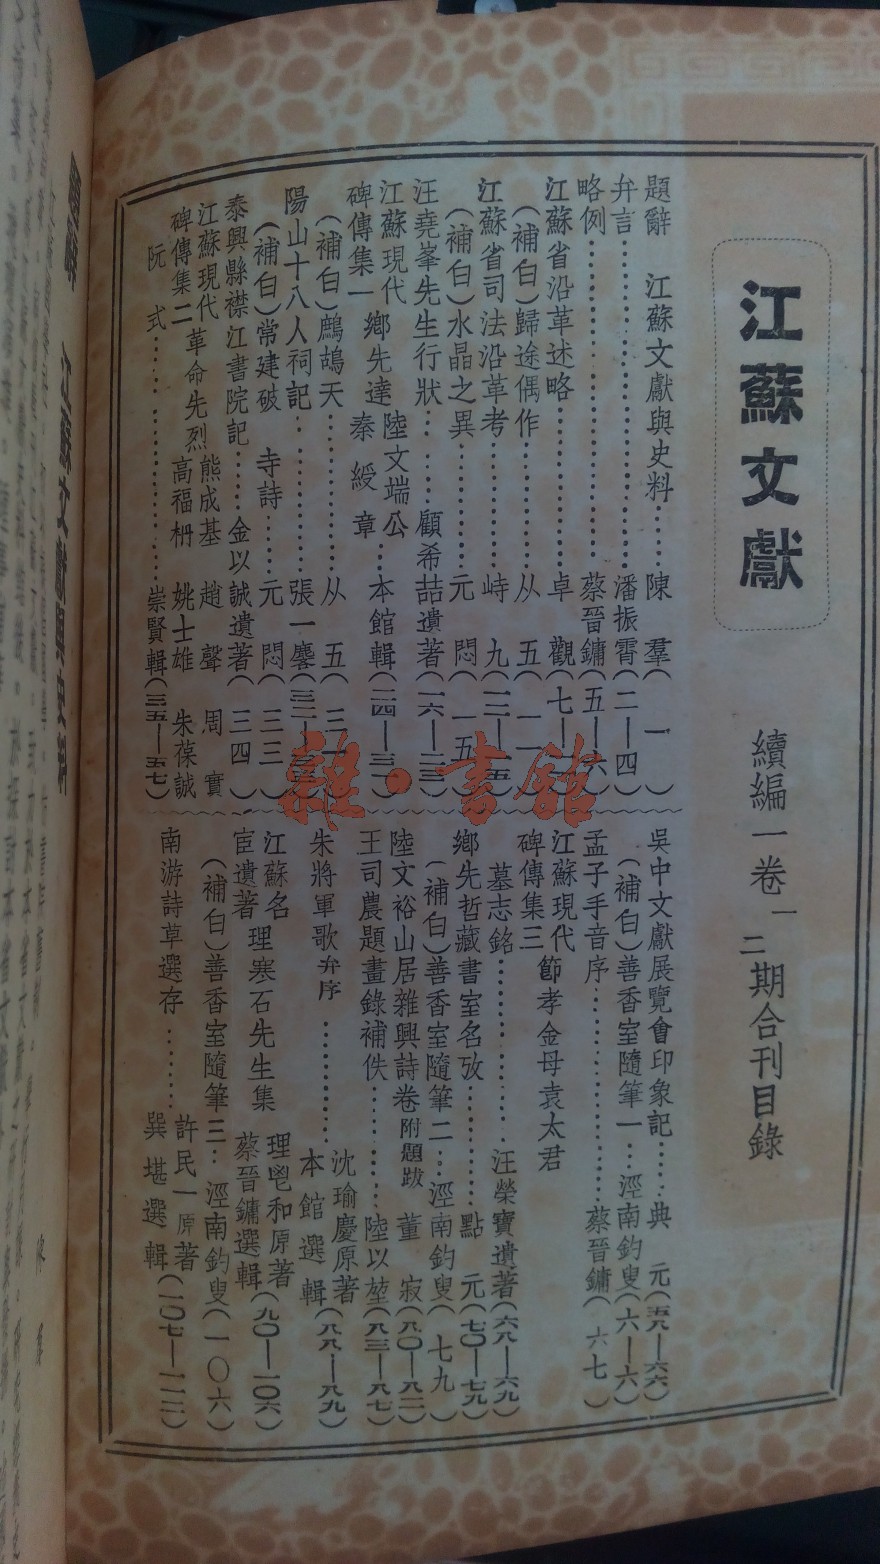 江蘇文獻
續編一卷一二期合刊目錄
題辭 江蘇文獻與史料……陳羣(一)
弁言……潘振霄(二—四)
略例……蔡晉鏞(五—六)
江蘇省沿革述略……卓觀(七—
(補白)歸途偶作……从五(一一)
江蘇省司法沿革考……峙九(一二—一五)
(補白)水晶之異……元悶(一五)
汪堯峯先生行狀……顧希喆遺著(一六—二三)
江蘇現代碑傳集一 鄉先達 陸文端公 秦綬章……本館輯(二四—三一)
(補白)鷓鴣天……从五(三一)
陽山十八人祠記……張一麐(三二—三三)
(補白)常建破 寺詩……元悶(三三)
泰興縣襟江書院記……金以誠遺著(三四)
江蘇現代碑傳集二 革命先烈 熊成基 趙聲 周實
高福枬 姚士雄 朱葆誠
阮式……崇賢輯(三五—五七)
吳中文獻展覽會印象記……典元(五八—六六)
(補白)善香室隨筆一…涇南釣叟(六—六)
孟子手音序……蔡晉鏞(六七)
江蘇現代碑傳集三 節孝金母袁太君
墓志銘……汪榮寶遺著(六八—六九)
鄉先哲藏書室名攷……點元(七〇—七九)
(補白)善香室隨筆二…涇南釣叟(七九)
陸文裕山居雜興詩卷附題跋 董寂(八〇—八二)
王司農題畫錄補佚……陸以堃(八三—八七)
朱將軍歌弁序……沈瑜慶原著 本館選輯(八八—八九)
江蘇名宦遺著 理寒石先生集 理鬯和原著 蔡晉鏞選輯(九〇—一〇六)
(補白)善香室隨筆三…涇南釣叟(一〇六)
南游詩草選存……許民一原著 巽堪選輯(一〇七—一一二)
雜·書館
江蘇文獻與史料